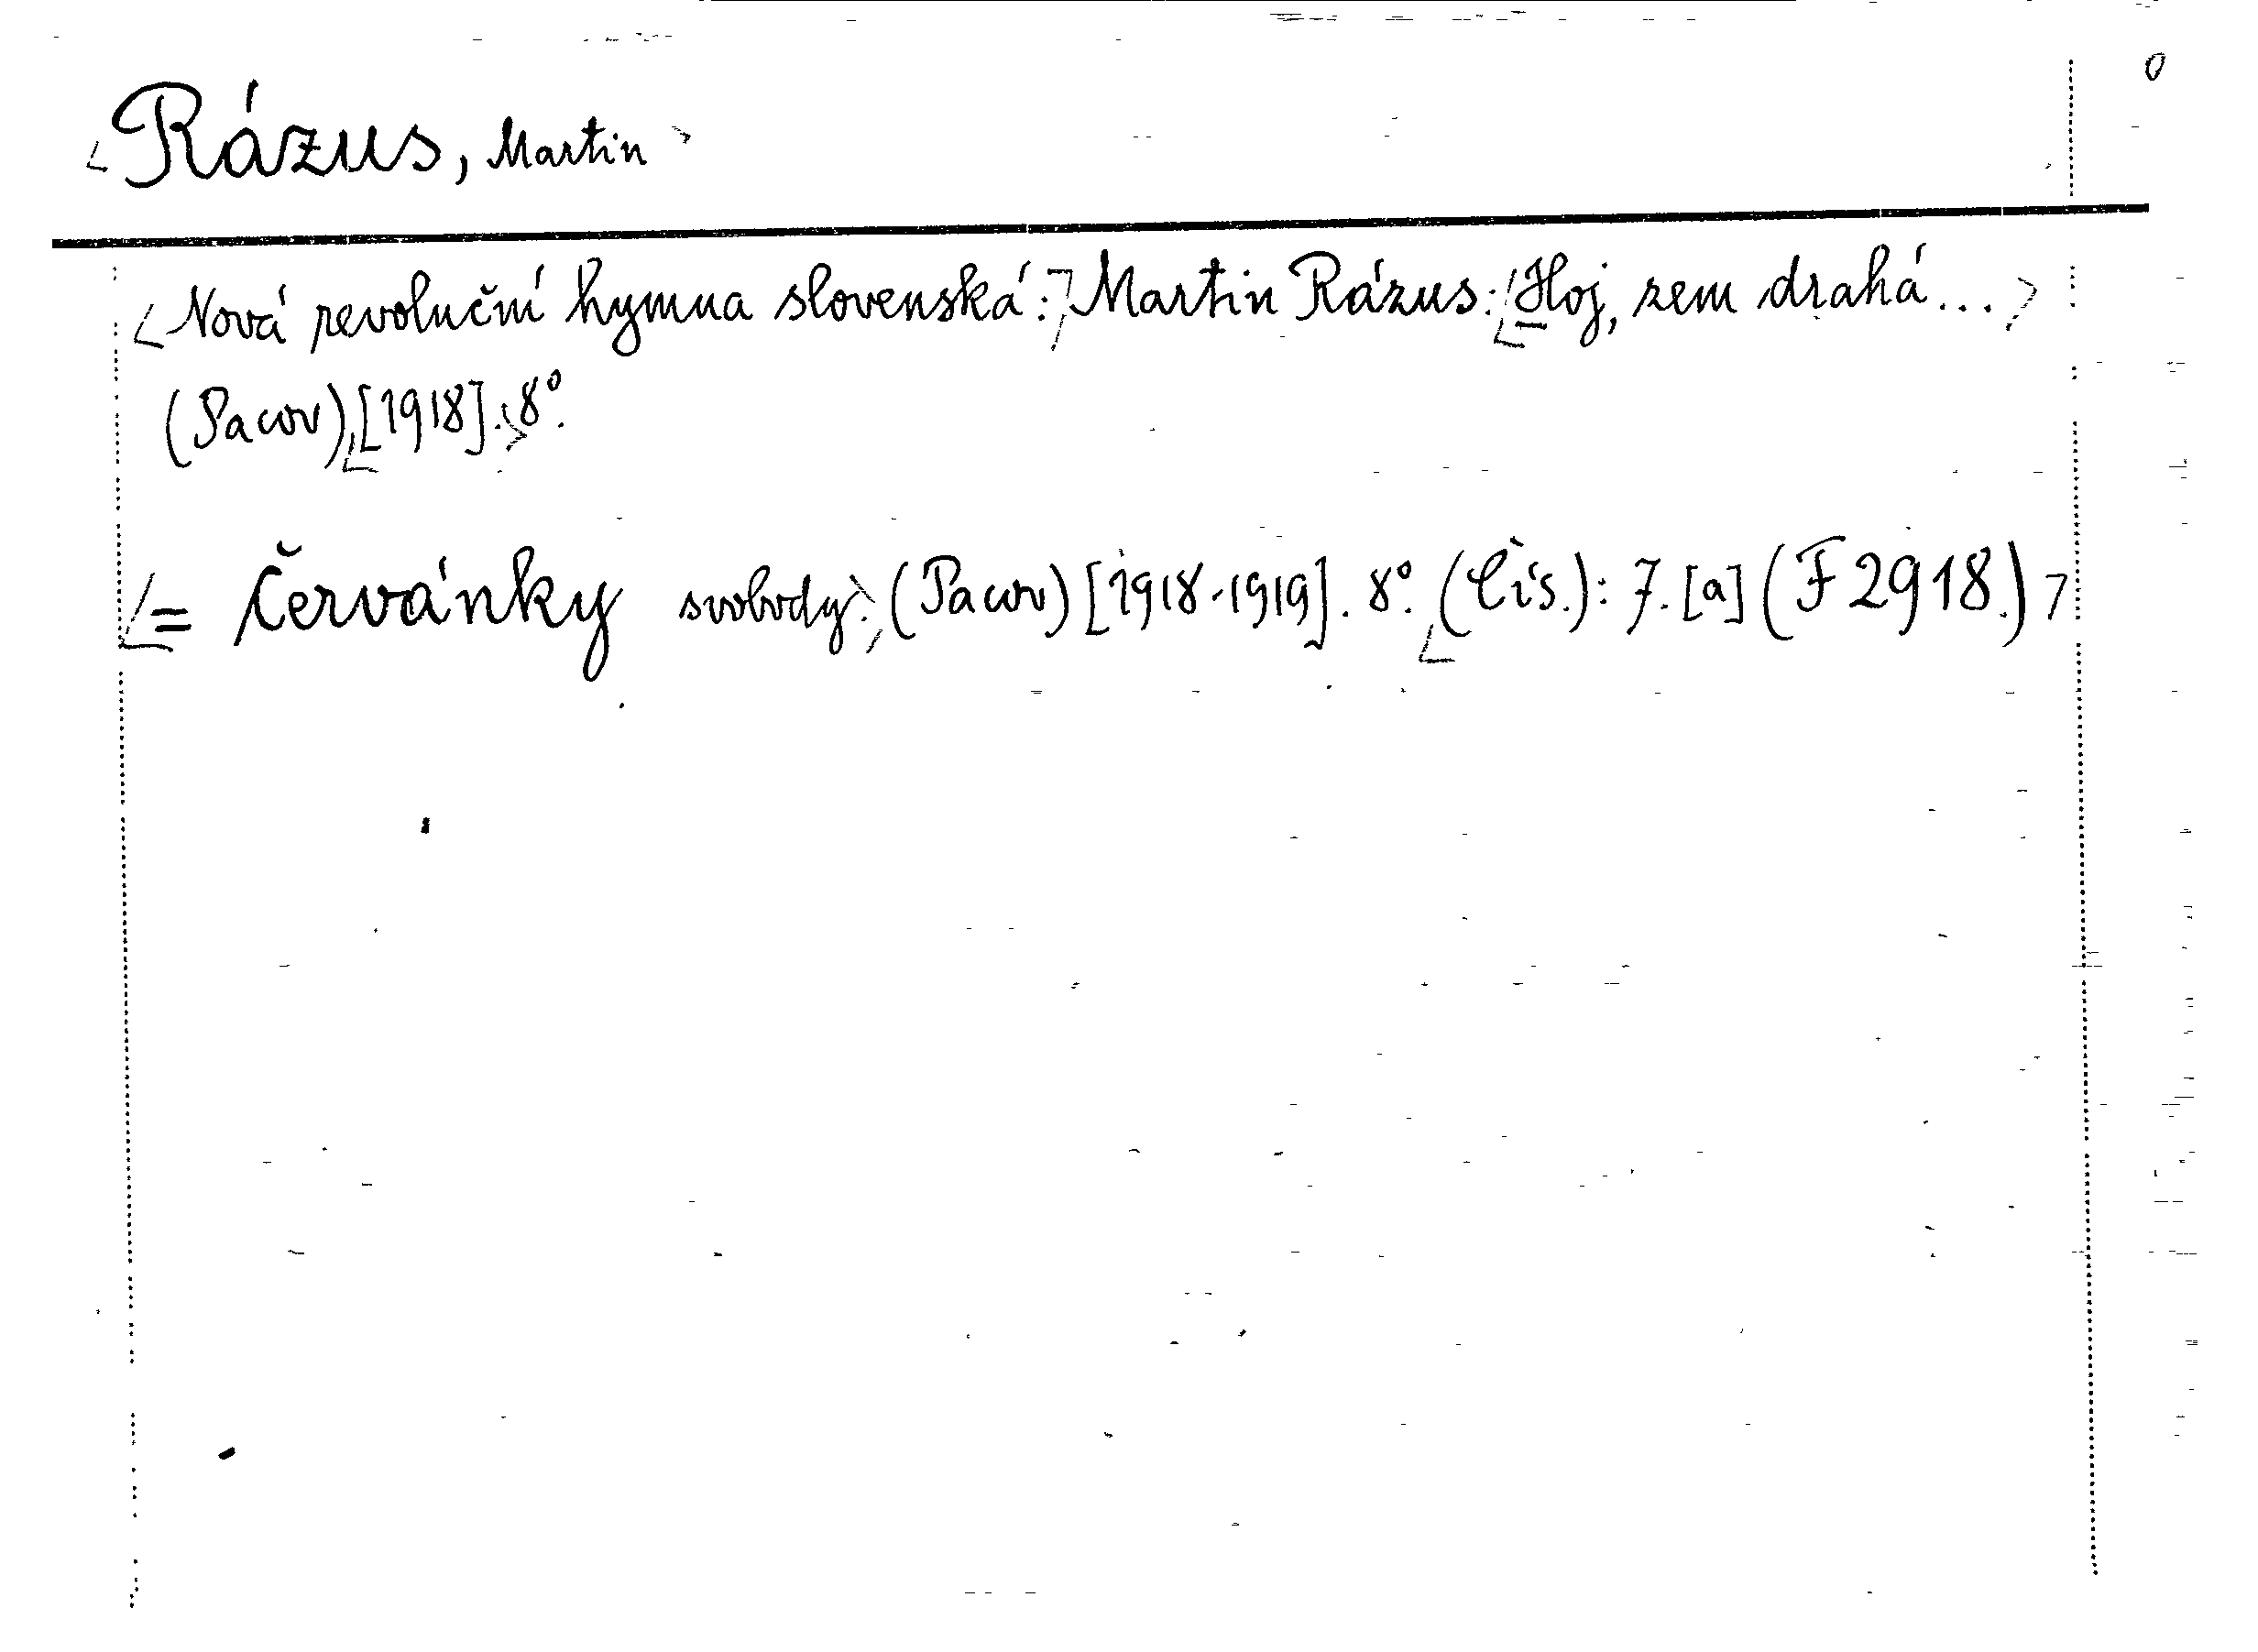 0
Rázus, Martin
Nová revoluční hymna slovenská: Martin Rázus: Hoj, zem drahá...
(Pacov), [1918]. 8°.
= Červánky svobody. (Pacov) [1918-1919]. 8°. (Čís.): 7. [a] (F 2918.)